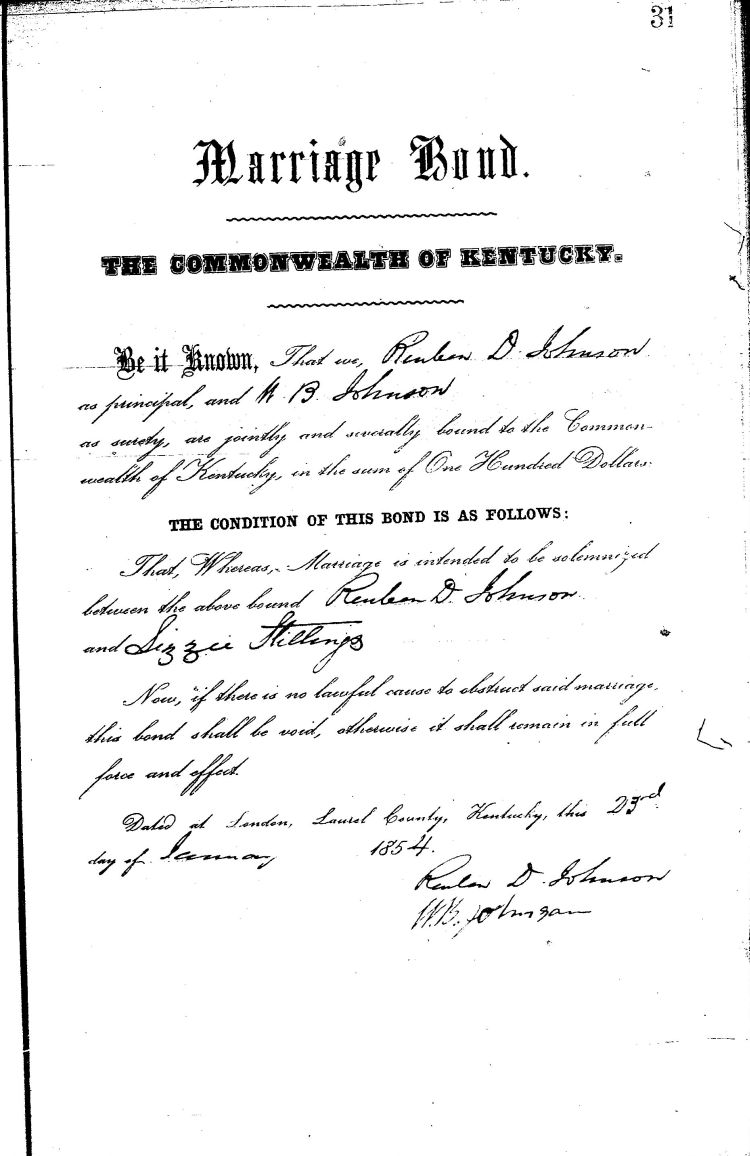 31
Marriage Bond.
THE COMMONWEALTH OF KENTUCKY.
Be it Known, That we, Reuben D. Johnson
as principal, and W. B. Johnson
as surety, are jointly and severally bound to the Common-
wealth of Kentucky, in the sum of One Hundred Dollars.
THE CONDITION OF THIS BOND IS AS FOLLOWS:
That, Whereas, Marriage is intended to be solemnized
between the above bound Reuben D. Johnson
and Lizzie Stillings
Now, if there is no lawful cause to obstruct said marriage,
this bond shall be void, otherwise it shall remain in full
force and effect.
Dated at London, Laurel County, Kentucky, this 23rd
day of January 1854.
Reuben D. Johnson
W.B. Johnson